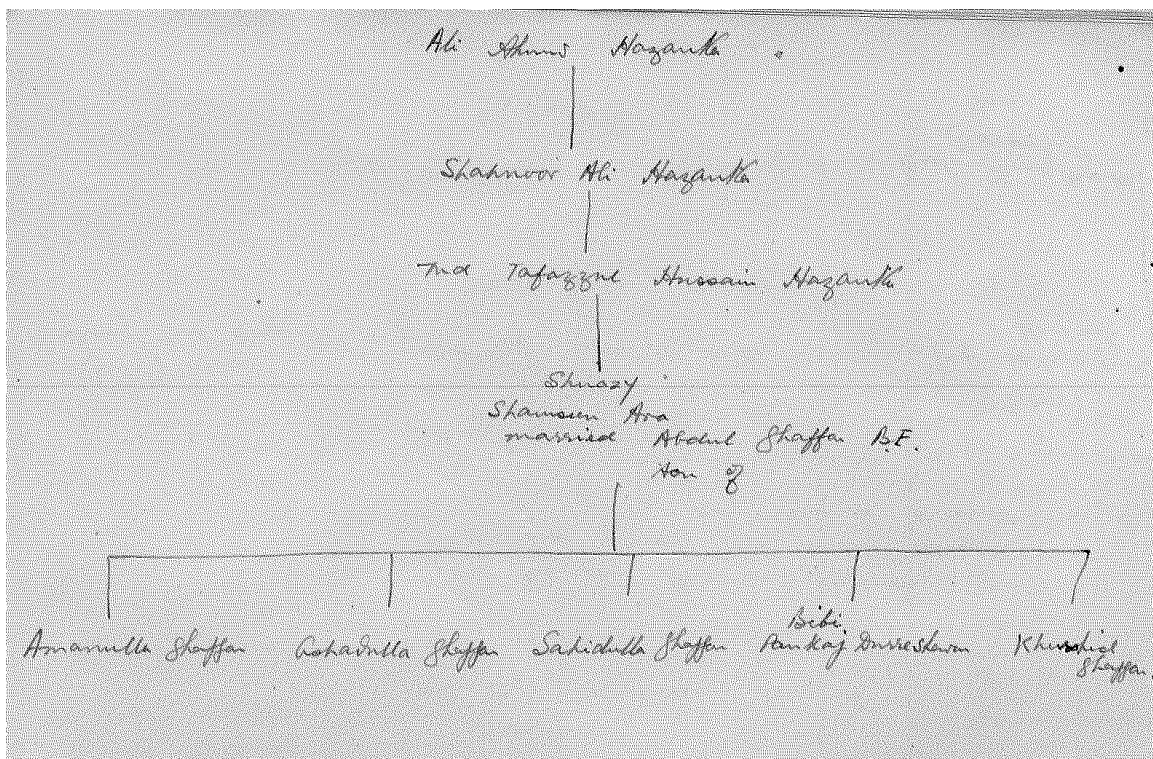 Ali Ahmed Hazarika
Shahnoor Ali Hazarika
Md Tafazzul Hussain Hazarika
Shamsun Ara
married Abdul Ghaffar B.E.
son of
Amanulla Ghaffar Ashadulla Ghaffar Sahidulla Ghaffar Bibi Durreshawar Khurshid
Ghaffar